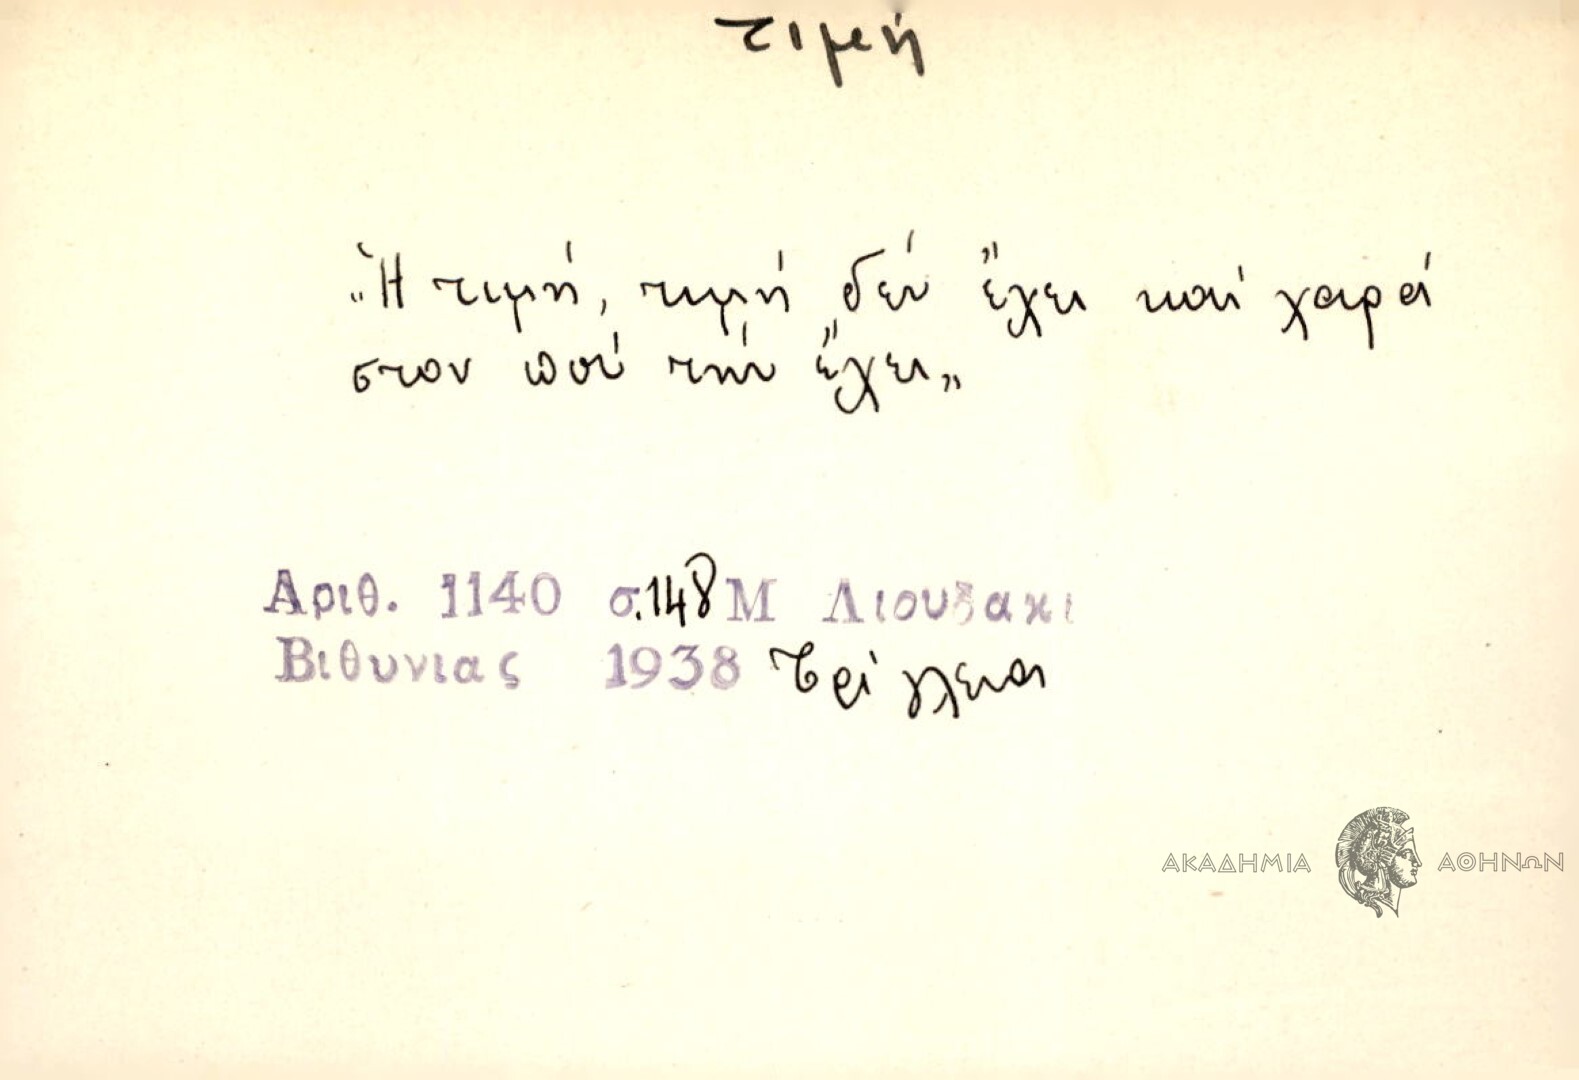 τιμή
„Ἡ τιμή, τιμή δέν ἔχει καί χαρά
στον πού τήν ἔχει„
Αριθ. 1140 σ.148 Μ Λιουδακι
Βιθυνιας 1938 Τρίγλεια
ΑΚΑΔΗΜΙΑ ΑΘΗΝΩΝ